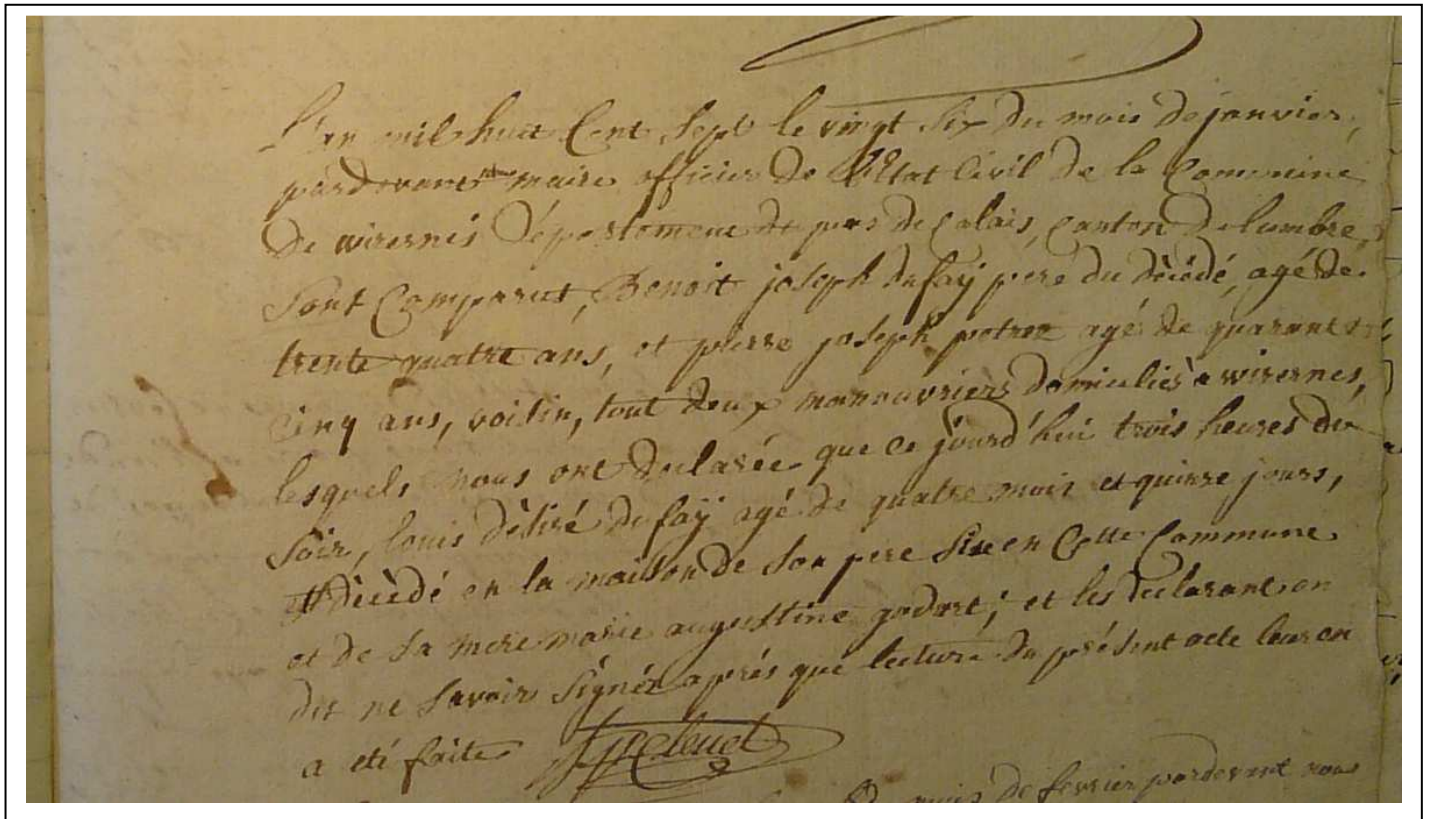 L'an mil huit Cent Sept le vingt Six du mois de janvier,
pardevant maire officier de l'Etat Civil de la Commune
de wirernes Département de pas de Calais, Canton de lumbre,
Sont Comparut, Benoit joseph dufaÿ pere du décédé, agé de
trente quatre ans, et pierre joseph potrez agé de quarante
Cinq ans, voisin, tout deux manouvriers domiciliés a wirernes,
lesquels nous ont declarée que ce jourd'hui trois heures du
Soir, louis désiré dufaÿ agé de quatre mois et quinze jours,
est décédé en la maison de Son pere Sise en Cette Commune
et de Sa mere marie augustine godart; et les declarant en
dit ne Savoir Signér aprés que lecture du présent acte leur en
a eté faite
mois de fevrier pardevant nous